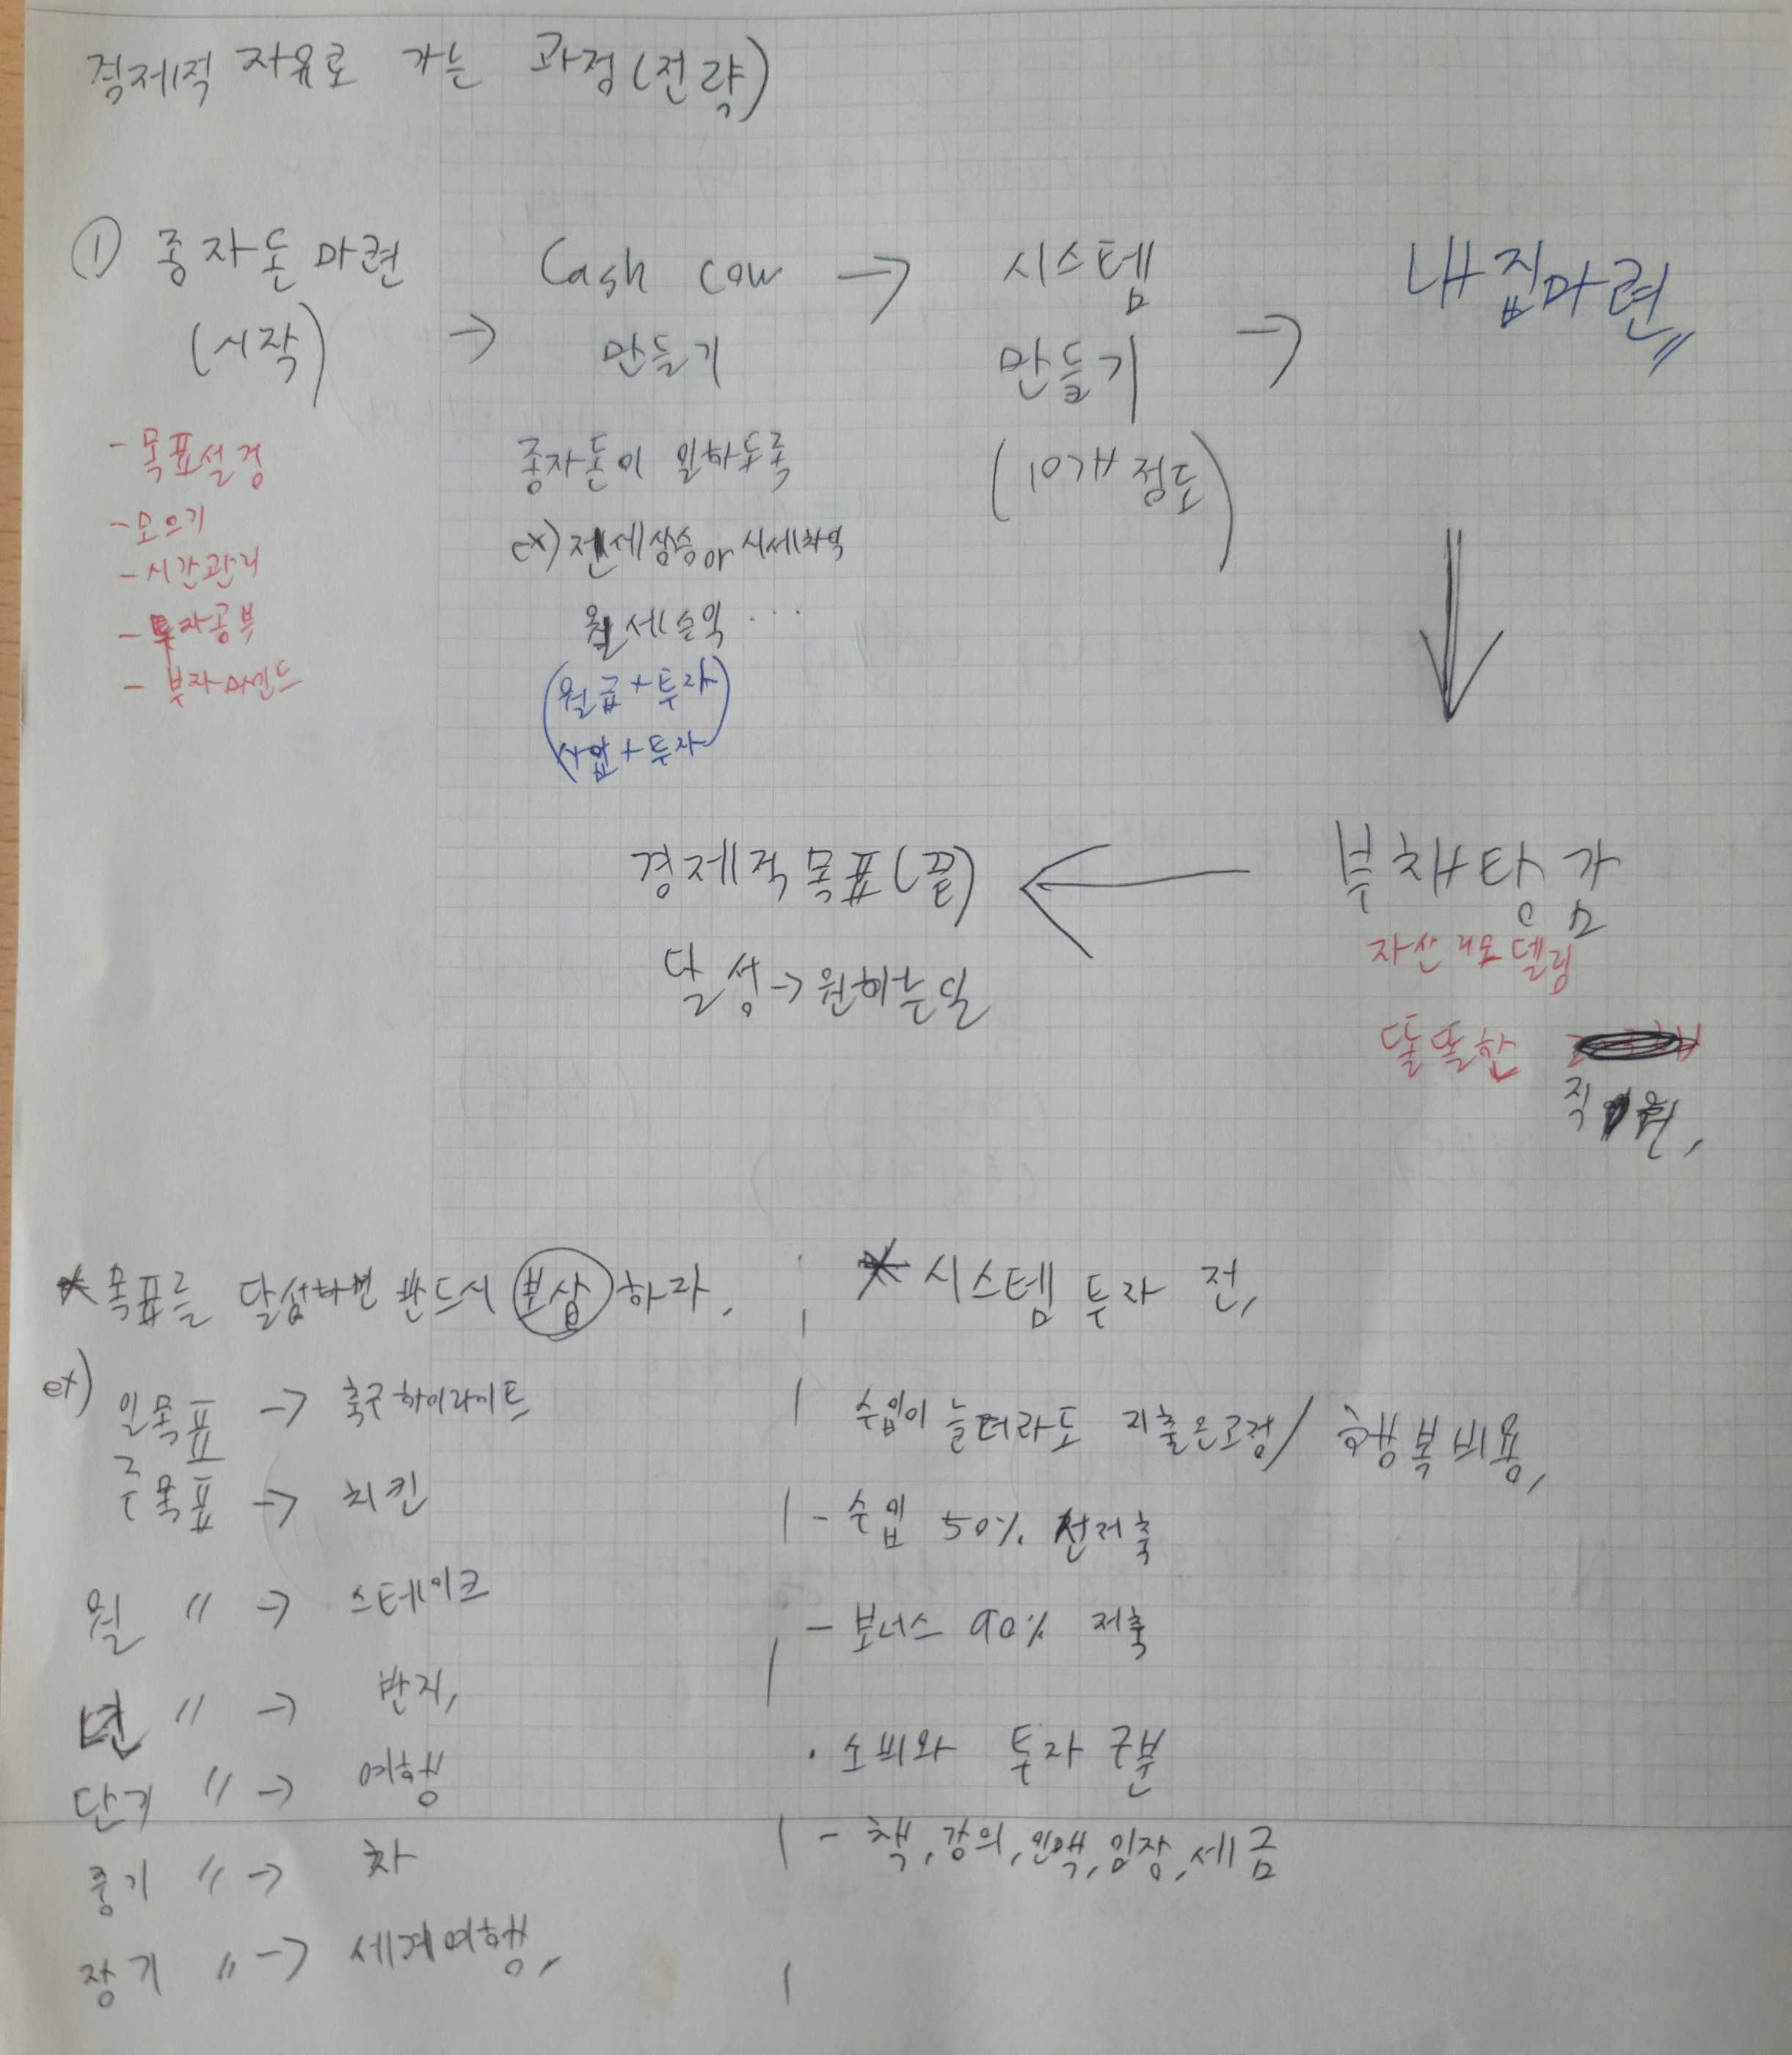 경제적 자유로 가는 과정(전략)
① 종자돈 마련
(시작)
- 목표설정
- 모으기
- 시간관리
- 투자공부
- 부자마인드
→
Cash cow
만들기
종자돈이 일하도록
ex) 전세상승 or 시세차익
월세수익 ...
(월급 + 투자
사업 + 투자)
→
시스템
만들기
(10개 정도)
→
내집마련
부채탕감
자산리모델링
똘똘한
직원,
경제적목표(끝)
달성 → 원하는일
* 목표를 달성하면 반드시 보상 하라.
ex) 일목표 → 축구하이라이트
주목표 → 치킨
월 〃 → 스테이크
년 〃 → 반지,
단기 〃 → 여행
중기 〃 → 차
장기 〃 → 세계여행,
* 시스템 투자 전,
수입이 늘더라도 지출은고정/ 행복비용,
- 수입 50% 선저축
- 보너스 90% 저축
· 소비와 투자 구분
- 책, 강의, 인맥, 임장, 세금